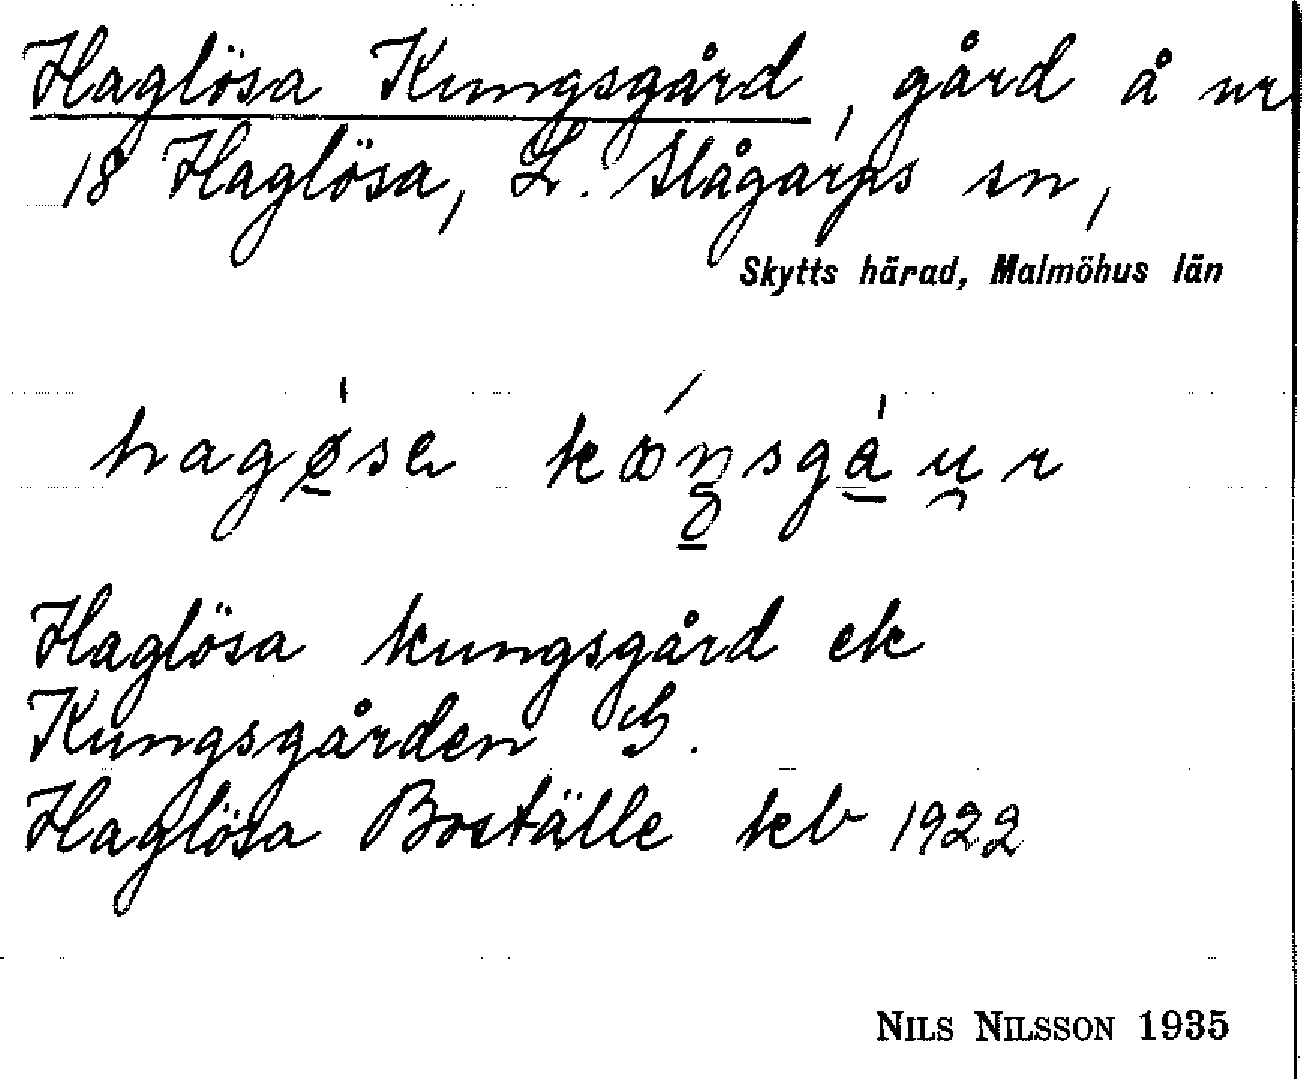 Haglösa Kungsgård, gård å nr
18 Haglösa, L. Slågarps sn,
Skytts härad, Malmöhus län
Haglösa kungsgård ek
Kungsgården G.
Haglösa Boställe keb 1922
NILS NILSSON 1935